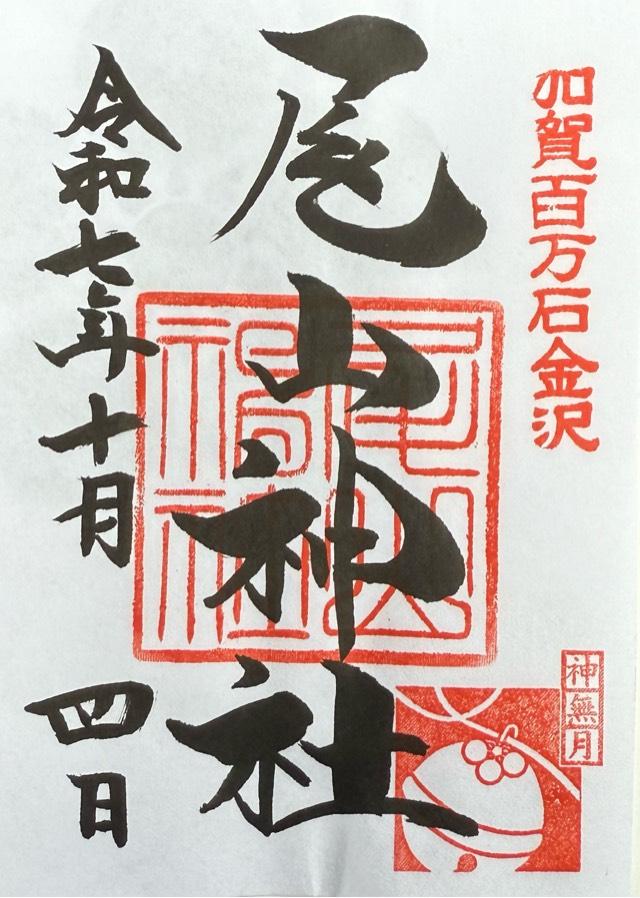 加賀百万石金沢
尾山神社
尾山神社
神無月
令和七年十月 四日